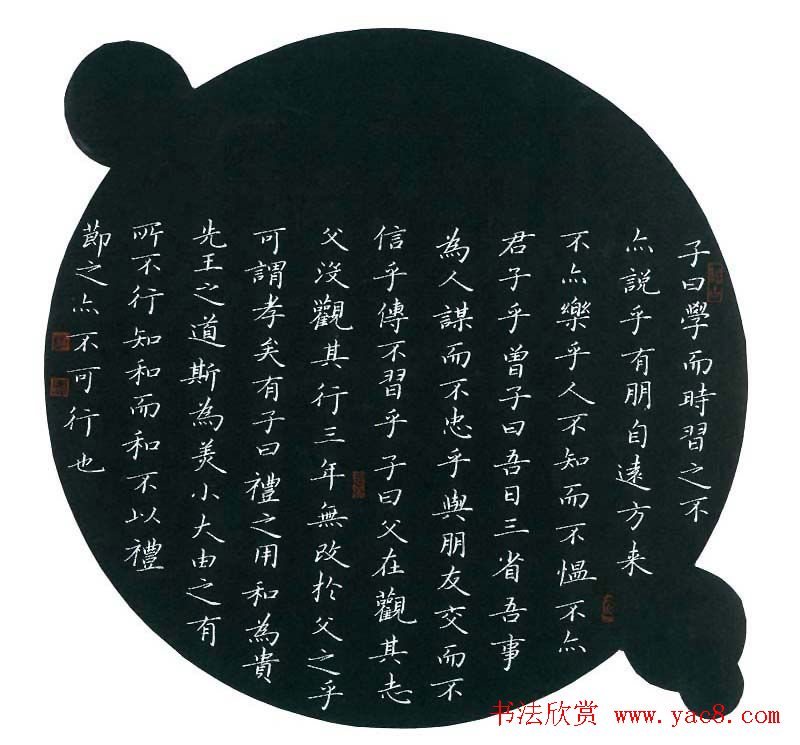 子曰學而時習之不
亦説乎有朋自遠方来
不亦樂乎人不知而不愠不亦
君子乎曾子曰吾日三省吾事
為人謀而不忠乎與朋友交而不
信乎傳不習乎子曰父在觀其志
父沒觀其行三年無改扵父之乎
可謂孝矣有子曰禮之用和為貴
先王之道斯為美小大由之有
所不行知和而和不以禮
節之亦不可行也
书法欣赏 www.yac8.com